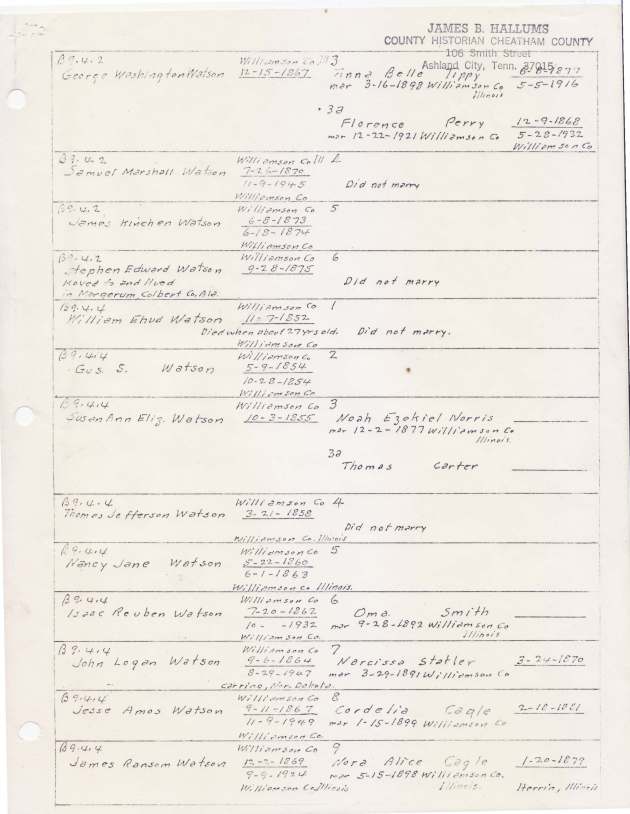 JAMES B. HALLUMS
COUNTY HISTORIAN CHEATHAM COUNTY
106 Smith Street
Ashland City, Tenn. 37015
B9.4.2 Williamson Co Ill 3
George Washington Watson 12-15-1867 Belle Tippy 8-8-1877
mar 3-16-1898 Williamson Co 5-5-1916
Illinois
3a
Florence Perry 12-9-1868
mar 12-22-1921 Williamson Co 5-28-1932
Williamson Co
B9.4.2 Williamson Co Ill
Samuel Marshall Watson 7-26-1870
11-9-1945 Did not marry
Williamson Co
B9.4.2 Williamson Co 5
James Kinchen Watson 6-8-1873
6-18-1874
Williamson Co
B9.4.2 Williamson Co 6
Stephen Edward Watson 9-28-1875
Moved to and lived Did not marry
in Margerum, Colbert Co, Ala.
B9.4.4 Williamson Co 1
William Ehud Watson 11-7-1852
Died when about 27 yrs old. Did not marry.
Williamson Co
B9.4.4 Williamson Co 2
Gus S. Watson 5-9-1854
10-28-1854
Williamson Co
B9.4.4 Williamson Co 3
Susan Ann Eliz. Watson 10-3-1855 Noah Ezekiel Norris
mar 12-2-1877 Williamson Co
Illinois
3a
Thomas Carter
B9.4.4 Williamson Co 4
Thomas Jefferson Watson 3-21-1858
Did not marry
Williamson Co. Illinois
B9.4.4 Williamson Co 5
Nancy Jane Watson 5-22-1860
6-1-1863
Williamson Co Illinois.
B9.4.4 Williamson Co 6
Isaac Reuben Watson 7-20-1862 Oma Smith
10- -1932 mar 9-28-1892 Williamson Co
Williamson Co. Illinois
B9.4.4 Williamson Co 7
John Logan Watson 9-6-1864 Narcissa Statler 3-24-1870
8-29-1947 mar 3-29-1891 Williamson Co
Carrino, Nor. Dakota
B9.4.4 Williamson Co 8
Jesse Amos Watson 9-11-1867 Cordelia Cagle 2-18-1881
11-9-1949 mar 1-15-1899 Williamson Co
Williamson Co.
B9.4.4 Williamson Co 9
James Ransom Watson 12-2-1869 Nora Alice Cagle 1-20-1879
9-9-1924 mar 5-15-1898 Williamson Co.
Williamson Co, Illinois Illinois. Herrin, Illinois